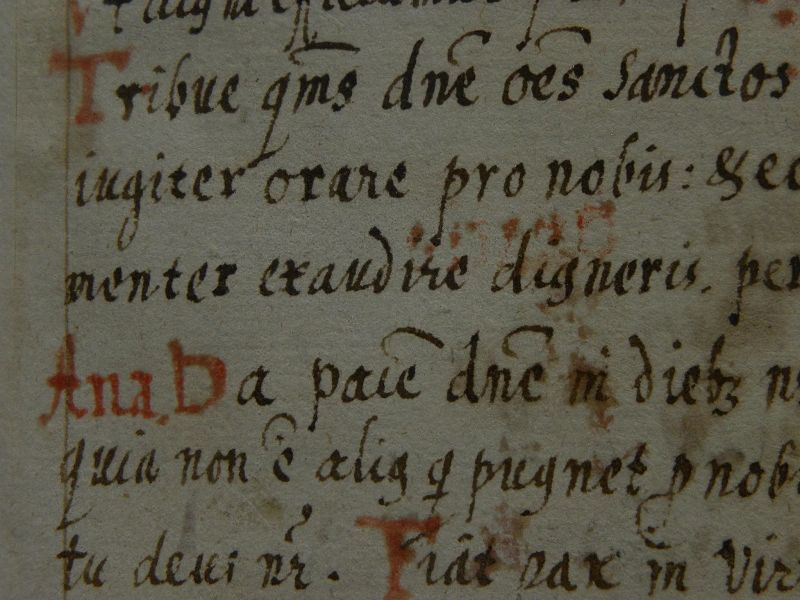 Tribue qm̄s dn̄e oēs sanctos
iugiter orare pro nobis: & ec
menter exaudire digneris. per
Ana. Da pacē dn̄e in dieb; n
quia non ē aliqs q pugnet p nob
tu deus nr̄. Fiāt pax in Vir